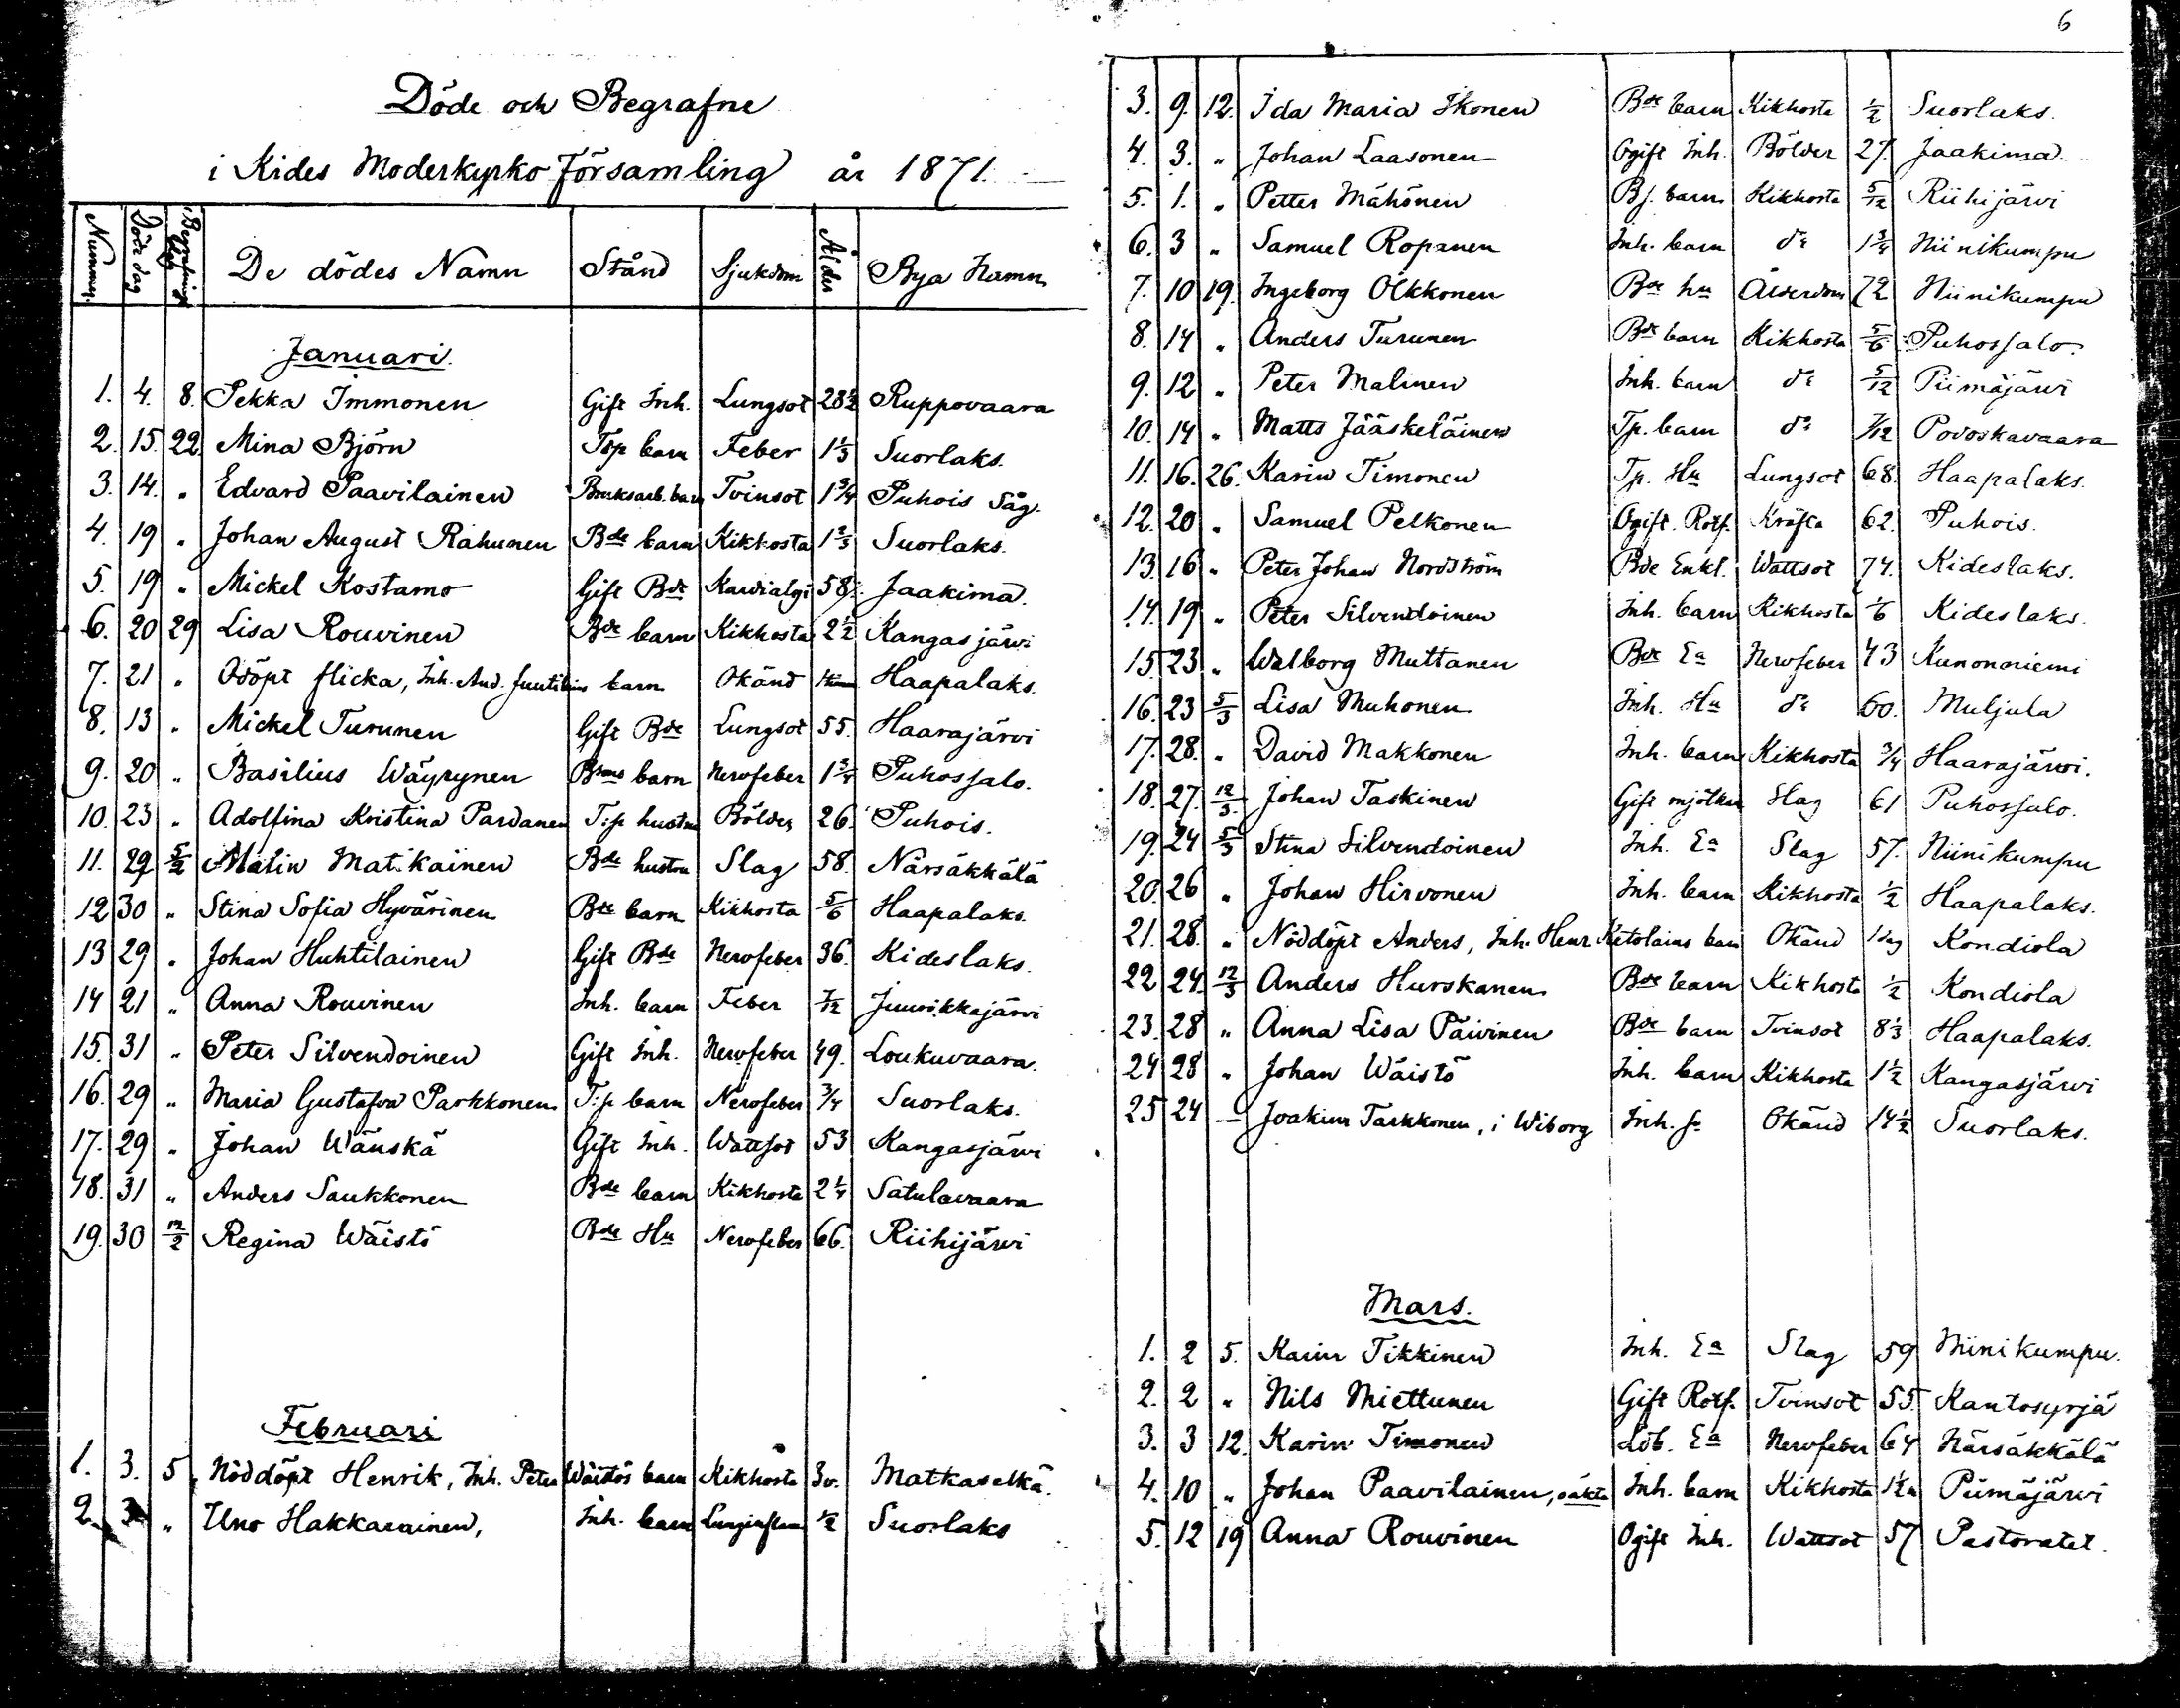 Döde och Begrafne
i Kides Moderkyrko Församling år 1871.
Nummer. Döde dag Begrafnings dag De dödes Namn Stånd Sjukdom Ålder Bya Namn
Januari.
1. 4. 8. Pekka Immonen Gift Inh. Lungsot 28½ Ruppovaara
2. 15. 22. Mina Björn Torp barn Feber 1⅓ Suorlaks.
3. 14. " Edvard Paavilainen Bruksarb. barn Tvinsot 1¾ Puhois Såg.
4. 19 " Johan August Rahunen Bde barn Kikhosta 1⅔ Suorlaks.
5. 19 " Mickel Kostamo Gift Bde Kardialgi 58. Jaakima.
6. 20 29 Lisa Rouvinen Bde barn Kikhosta 2½ Kangasjärvi
7. 21 " Odöpt flicka, Inh. And. barn Okänd Haapalaks.
8. 13 " Mickel Turunen Gift Bde Lungsot 55. Haarajärvi
9. 20 " Basilius Wäyrynen barn Nervfeber 1¾ Puhossalo.
10. 23 " Adolfina Kristina Pardanen T:p hustru Bölder 26. Puhois.
11. 29 5/2 Malin Matikainen Bde hustru Slag 58. Närsäkkälä
12 30 " Stina Sofia Hyvärinen Bde barn Kikhosta 5/6 Haapalaks.
13 29 " Johan Huhtilainen Gift Bde Nervfeber 36. Kideslaks.
14 21 " Anna Rouvinen Inh. barn Feber 7/12 Juurikkajärvi
15. 31 " Peter Silvendoinen Gift Inh. Nervfeber 49. Loukuvaara.
16. 29 " Maria Gustafva Parkkonen T:p barn Nervfeber ¾ Suorlaks.
17. 29 " Johan Wänskä Gift Inh. Wattsot 53 Kangasjärvi
18. 31 " Anders Saukkonen Bde barn Kikhosta 2¼ Satulavaara
19. 30 12/2 Regina Wäistö Bde Hu Nervfeber 66. Riihijärvi
Februari
1. 3. 5 Nöddöpt Henrik, Inh. Peter Wäistös barn Kikhosta 3v. Matkaselkä.
2. 3 " Uno Hakkarainen, Inh. barn Lunginflam ½ Suorlaks
6
3. 9. 12. Ida Maria Ikonen Bde barn Kikhosta ½ Suorlaks.
4. 3. " Johan Laasonen Ogift Inh. Bölder 27. Jaakima.
5. 1. " Petter Mähönen Bf. barn Kikhosta 5/12 Riihijärvi
6. 3 " Samuel Ropanen Inh. barn do 1¾ Niinikumpu
7. 10 19. Ingeborg Olkkonen Bde hu Ålderdom 72 Niinikumpu
8. 14 " Anders Turunen Bde barn Kikhosta 5/6 Puhossalo.
9. 12 " Peter Malinen Inh. barn do 5/12 Piimäjärvi
10. 14 " Matts Jääskeläinen Tp. barn do 7/12 Povoskavaara
11. 16. 26. Karin Timonen Tp. Hu Lungsot 68. Haapalaks.
12. 20 " Samuel Pelkonen Ogift. Rotf. Kräfta 62. Puhois.
13. 16 " Peter Johan Nordström Bde Enkl. Wattsot 74. Kideslaks.
14. 19 " Peter Silvendoinen Inh. barn Kikhosta 1/6 Kideslaks.
15. 23 " Walborg Muttanen Bde Ea Nervfeber 43 Kunonniemi
16. 23 5/3 Lisa Muhonen Inh. Hu do 60. Muljula
17. 28. " David Makkonen Inh. barn Kikhosta ¾ Haarajärvi.
18. 27. 12/3. Johan Taskinen Gift Slag 61 Puhossalo.
19. 24 5/3 Stina Silvendoinen Inh. Ea Slag 57. Niinikumpu
20. 26 " Johan Hirvonen Inh. barn Kikhosta ½ Haapalaks.
21. 28. " Nöddöpt Anders, Inh. Henr Ketolains barn Okänd Kondiola
22 24. 12/3 Anders Hurskanen Bde barn Kikhosta ½ Kondiola
23. 28 " Anna Lisa Päivinen Bde barn Tvinsot 8⅓ Haapalaks.
24 28 " Johan Wäistö Inh. barn Kikhosta 1½ Kangasjärvi
25 24 — Joakim Tarkkonen, i Wiborg Inh. Okänd 14½ Suorlaks.
Mars.
1. 2 5. Karin Tikkinen Inh. Ea Slag 59 Niinikumpu.
2. 2 " Nils Miettunen Gift Rotf. Tvinsot 55. Kantosyrjä
3. 3 12. Karin Timonen Lösb. Ea Nervfeber 64 Närsäkkälä
4. 10 " Johan Paavilainen, oäkta Inh. barn Kikhosta Piimäjärvi
5. 12 19 Anna Rouvinen Ogift Inh. Wattsot 57 Pastoratet.